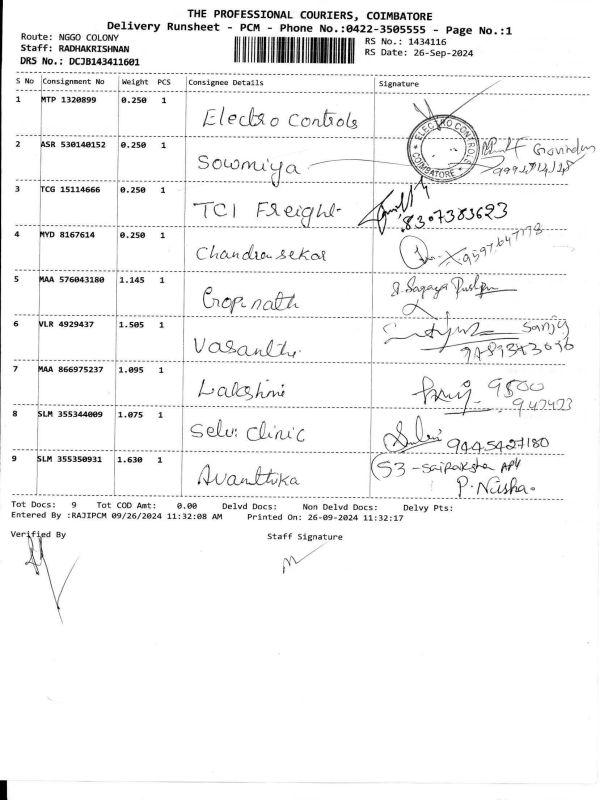 THE PROFESSIONAL COURIERS, COIMBATORE
Delivery Runsheet - PCM - Phone No.:0422-3505555 - Page No.:1
Route: NGGO COLONY
RS No.: 1434116
Staff: RADHAKRISHNAN
RS Date: 26-Sep-2024
DRS No.: DCJB143411601
S No Consignment No Weight PCS Consignee Details Signature
1 MTP 1320899 0.250 1 Electro Controls
ELECTRO CONTROLS COIMBATORE
2 ASR 530140152 0.250 1 Sowmiya Govindan
3 TCG 15114666 0.250 1 TCI Freight 8307383623
4 MYD 8167614 0.250 1 Chandrasekar
5 MAA 576043180 1.145 1 Gopinath S. Sagaya Pushpa
6 VLR 4929437 1.505 1 Vasanthi
7 MAA 866975237 1.095 1 Lakshmi
8 SLM 355344009 1.075 1 Selvi Clinic 9445427180
9 SLM 355350931 1.630 1 Avanthika S3 - Sairaksha APt
P. Nisha.
Tot Docs: 9 Tot COD Amt: 0.00 Delvd Docs: Non Delvd Docs: Delvy Pts:
Entered By :RAJIPCM 09/26/2024 11:32:08 AM Printed On: 26-09-2024 11:32:17
Verified By Staff Signature